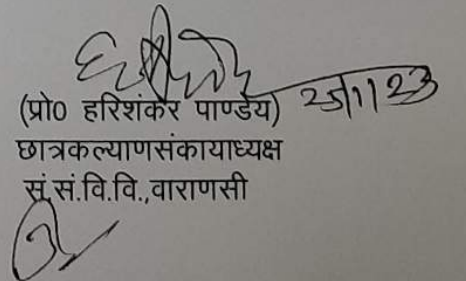 (प्रो0 हरिशंकर पाण्डेय)
छात्रकल्याणसंकायाध्यक्ष
सं.सं.वि.वि.,वाराणसी